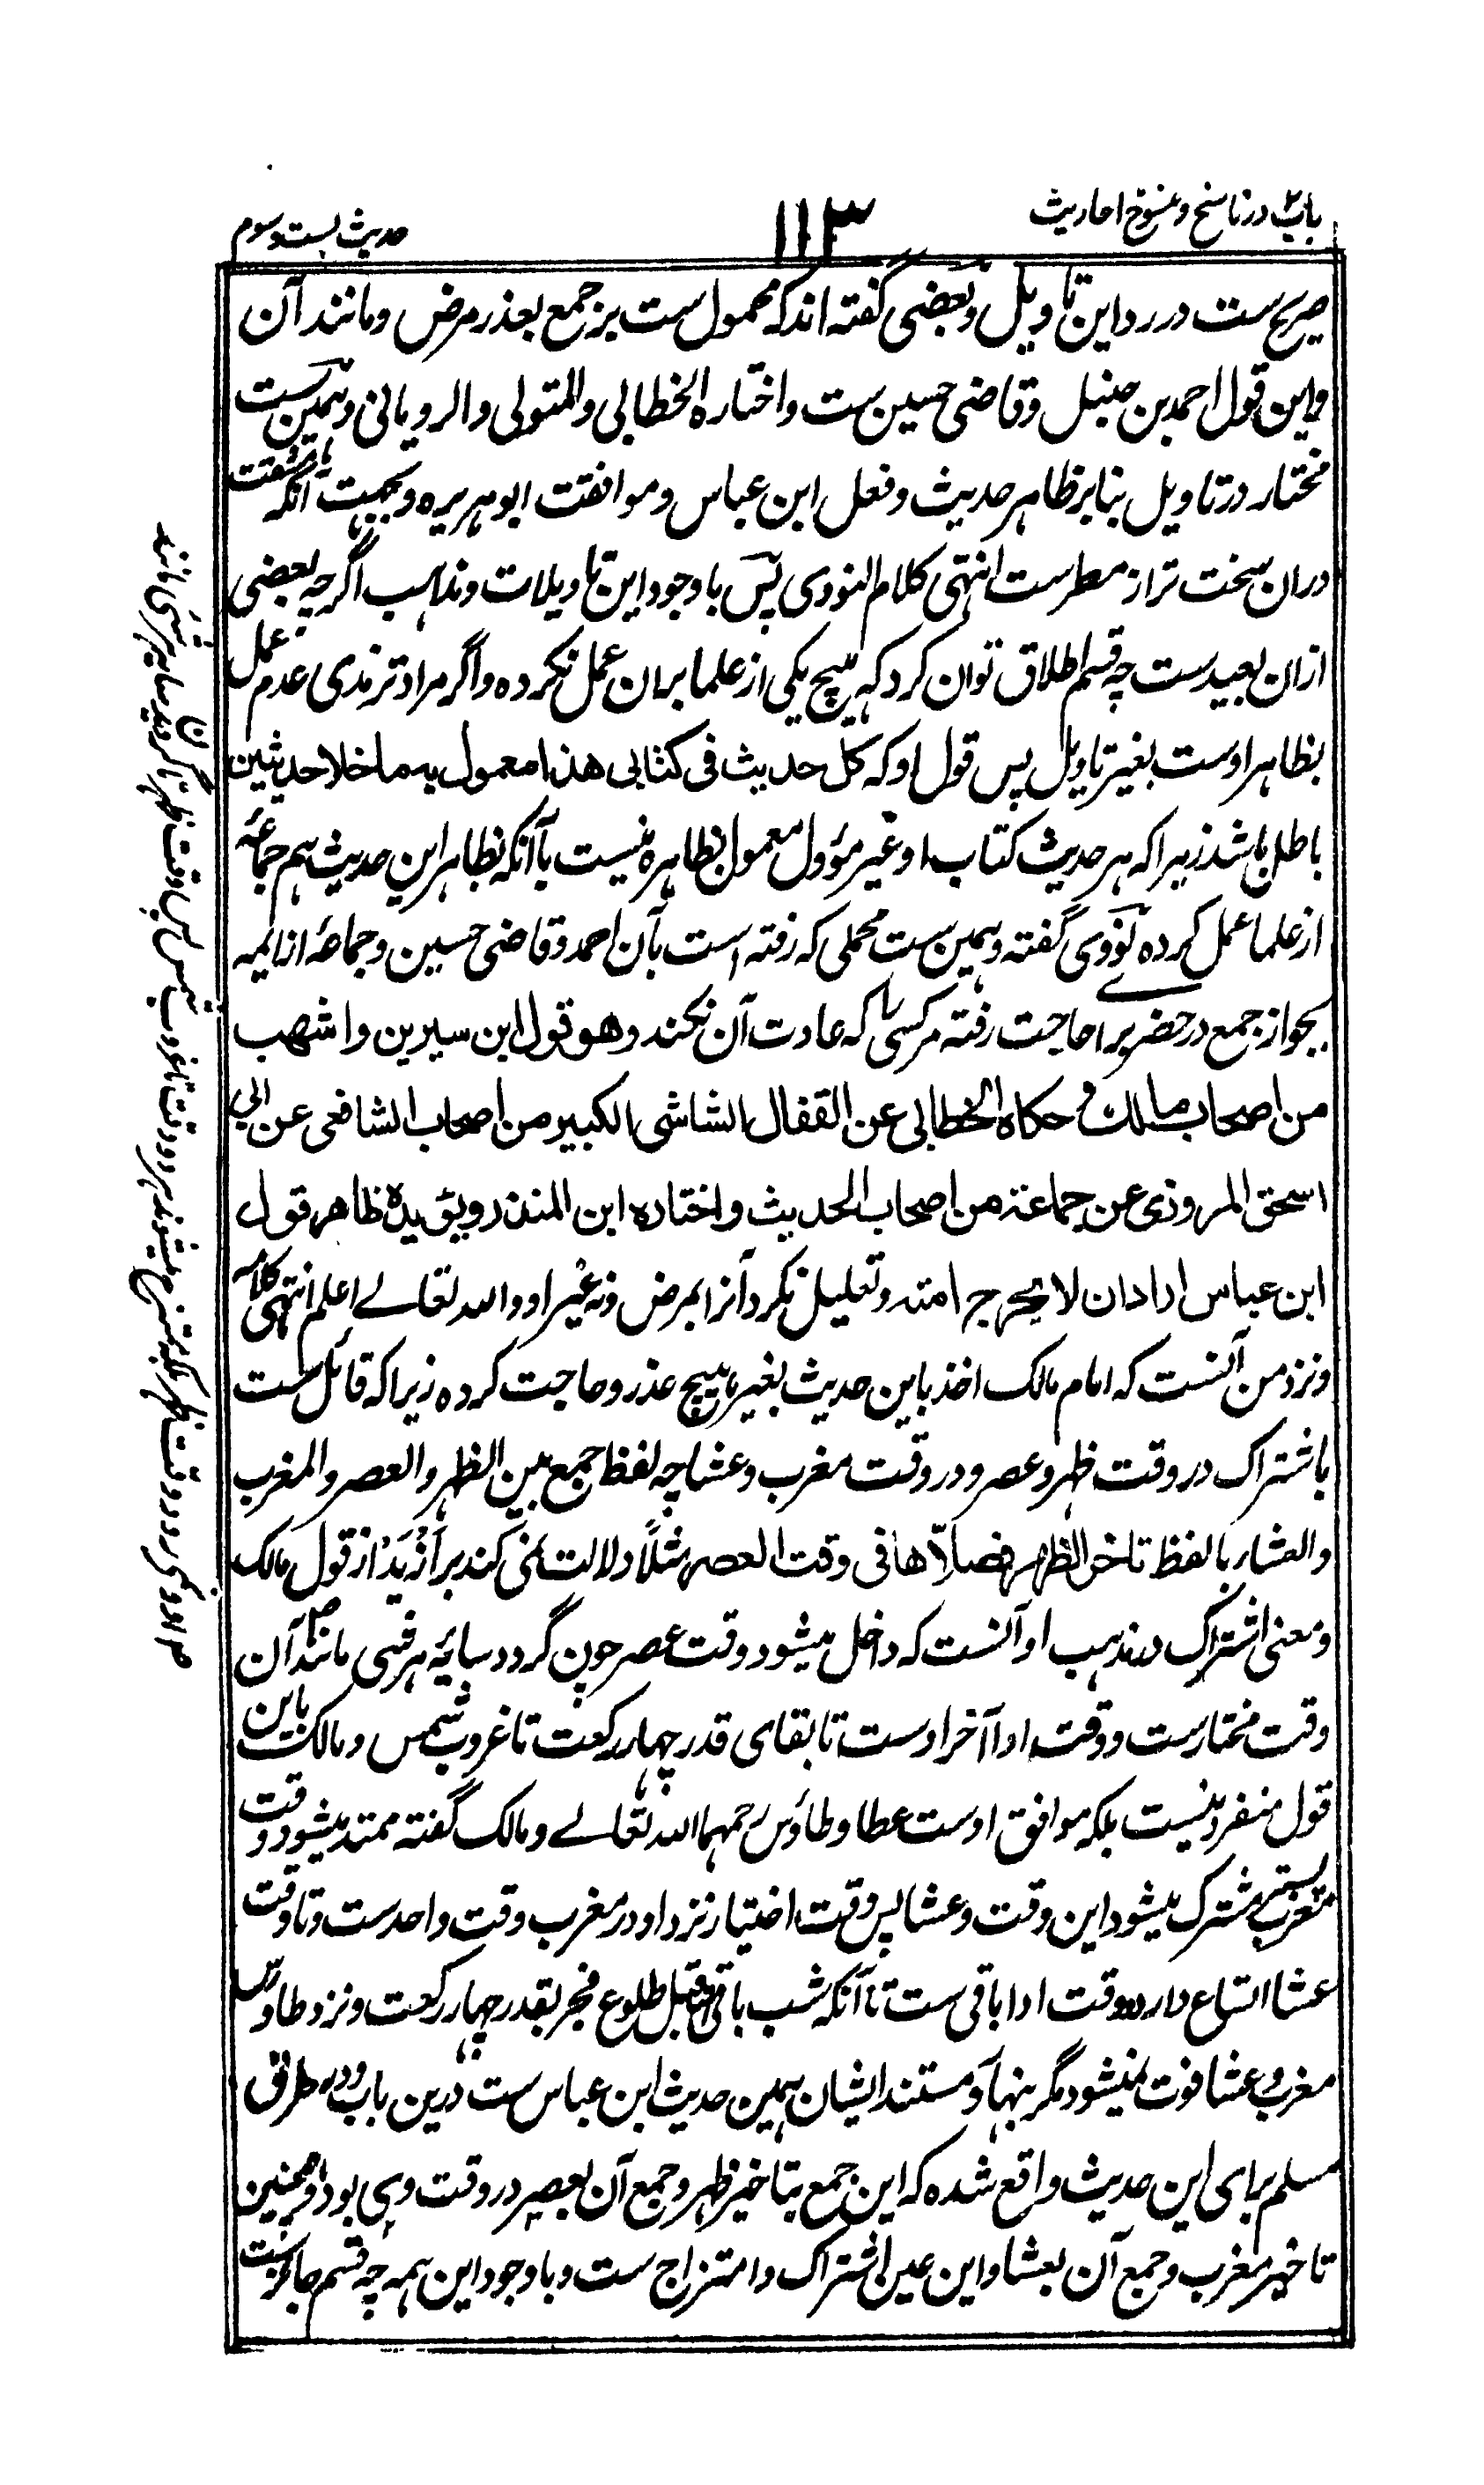 باب۲ در ناسخ و منسوخ احادیث
۱۱۳
حدیث بست و سوم
صریح ست در رد این تاویل و بعضی گفته اند که محمول ست بر جمع بعذر مرض و مانند آن
و این قول احمد بن حنبل و قاضی حسین ست و اختاره الخطابی والمتولی والرویانی و همین ست
مختار در تاویل بنابر ظاهر حدیث و فعل ابن عباس و موافقت ابو هریره و بجهت آنکه مشقت
دران سخت تر از مطر ست انتهی کلام النووی پس با وجود این تاویلات و مذاهب اگرچه بعضی
ازان بعید ست چه قسم اطلاق توان کرد که هیچ یکی از علما بران عمل نکرده و اگر مراد ترمذی عدم عمل
بظاهر اوست بغیر تاویل پس قول او که کل حدیث فی کتابی هذا معمول به ما خلا حدیثین
باطل باشد زیرا که هر حدیث کتاب او غیر مؤول معمول بظاهره نیست با آنکه بظاهر این حدیث هم جماعۀ
از علما عمل کرده نووی گفته و همین ست محملی که رفته است بآن احمد و قاضی حسین و جماعۀ از ایمه
بجواز جمع در حضر برای حاجت رفته مر کسی را که عادت آن نکند وهو قول ابن سیرین واشهب
من اصحاب مالک و حکاه الخطابی عن القفال الشاشی الکبیر من اصحاب الشافعی عن ابی
اسحق المروزی عن جماعة من اصحاب الحدیث واختاره ابن المنذر ویؤیده ظاهر قول
ابن عباس اراد ان لا یحرج امته و تعلیل نکرد آنرا بمرض و نه غیر او والله تعالے اعلم انتهی کلامه
و نزد من آنست که امام مالک اخذ باین حدیث بغیر هیچ عذر و حاجت کرده زیرا که قائل ست
باشتراک در وقت ظهر و عصر و در وقت مغرب و عشا چه لفظ جمع بین الظهر والعصر والمغرب
والعشاء یا لفظ تاخر الظهر فصلاها فی وقت العصر مثلاً دلالت نمی کند بر اَزْیَد از قول مالک
و معنی اشتراک در مذهب او آنست که داخل میشود وقت عصر چون گردد سایۀ هر شی مانند آن
وقت مختار ست و وقت ادا آخر اوست تا بقای قدر چهار رکعت تا غروب شمس و مالک باین
قول منفرد نیست بلکه موافق اوست عطا و طاؤس رحمهما الله تعالے و مالک گفته ممتد میشود وقت
مغرب پستر مشترک میشود این وقت و عشا پس وقت اختیار نزد او در مغرب وقت واحد ست و تا وقت
عشا اتساع دارد و وقت ادا باقی ست تا آنکه شب باقی قبل طلوع فجر بقدر چهار رکعت و نزد طاؤس
مغرب و عشا فوت نمیشود مگر بنهار و مستند ایشان همین حدیث ابن عباس ست درین باب و در طرق
مسلم برای این حدیث واقع شده که این جمع بتاخیر ظهر و جمع آن بعصر در وقت وی بود و همچنین
تاخیر مغرب و جمع آن بعشا و این عین اشتراک و امتزاج ست و با وجود این همه چه قسم جائز ست